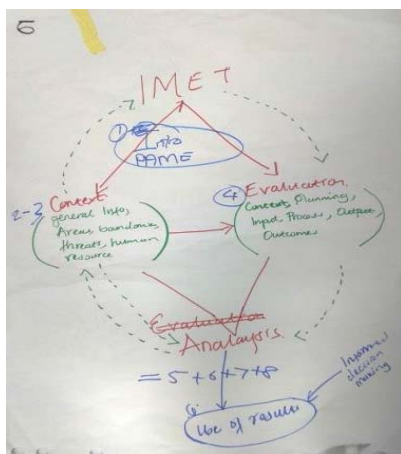 5
IMET
①
Intro
PAME
2-3
Context
general Info,
Areas, boundaries,
threats, human
resource
④
Evaluation
Context, Planning,
Input, Process, Output,
Outcomes
Evaluation
Analaysis
= 5 + 6 + 7 + 8
Use of results
Informed
decision
making